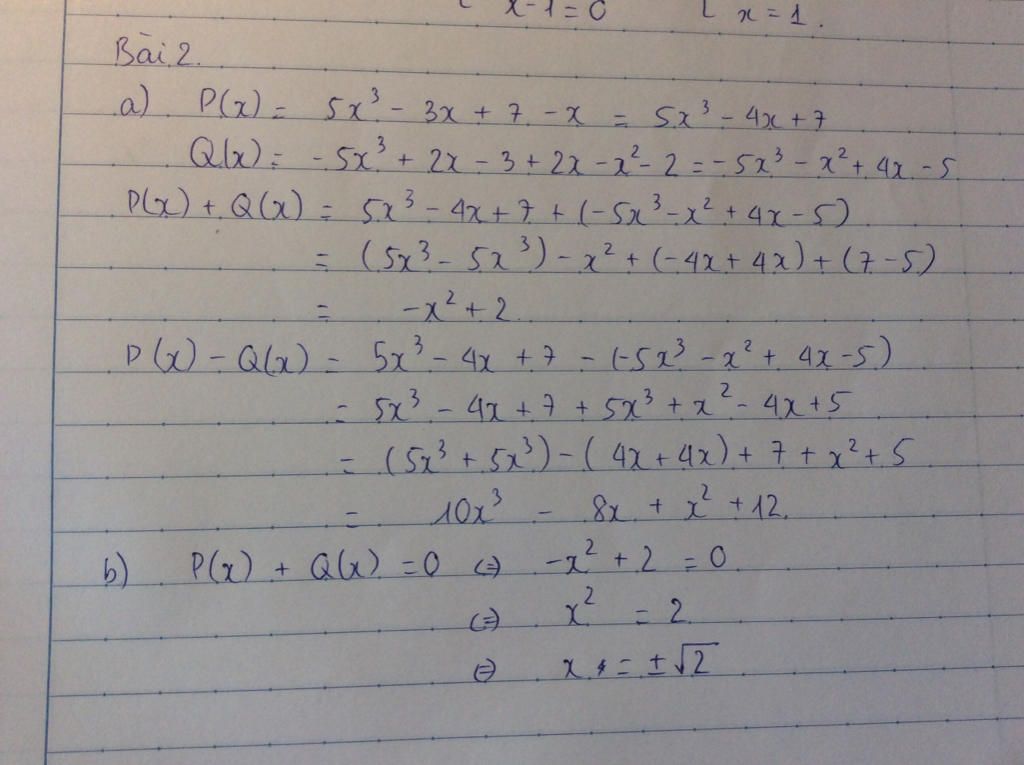 x-1=0 [ x=1.
Bài 2.
a) P(x) = 5x³ - 3x + 7 - x = 5x³ - 4x + 7
Q(x) = -5x³ + 2x - 3 + 2x - x² - 2 = -5x³ - x² + 4x - 5
P(x) + Q(x) = 5x³ - 4x + 7 + (-5x³ - x² + 4x - 5)
= (5x³ - 5x³) - x² + (-4x + 4x) + (7 - 5)
= -x² + 2.
P(x) - Q(x) = 5x³ - 4x + 7 - (-5x³ - x² + 4x - 5)
= 5x³ - 4x + 7 + 5x³ + x² - 4x + 5
= (5x³ + 5x³) - (4x + 4x) + 7 + x² + 5
= 10x³ - 8x + x² + 12.
b) P(x) + Q(x) = 0 ⇔ -x² + 2 = 0
⇔ x² = 2
⇔ x = ±√2